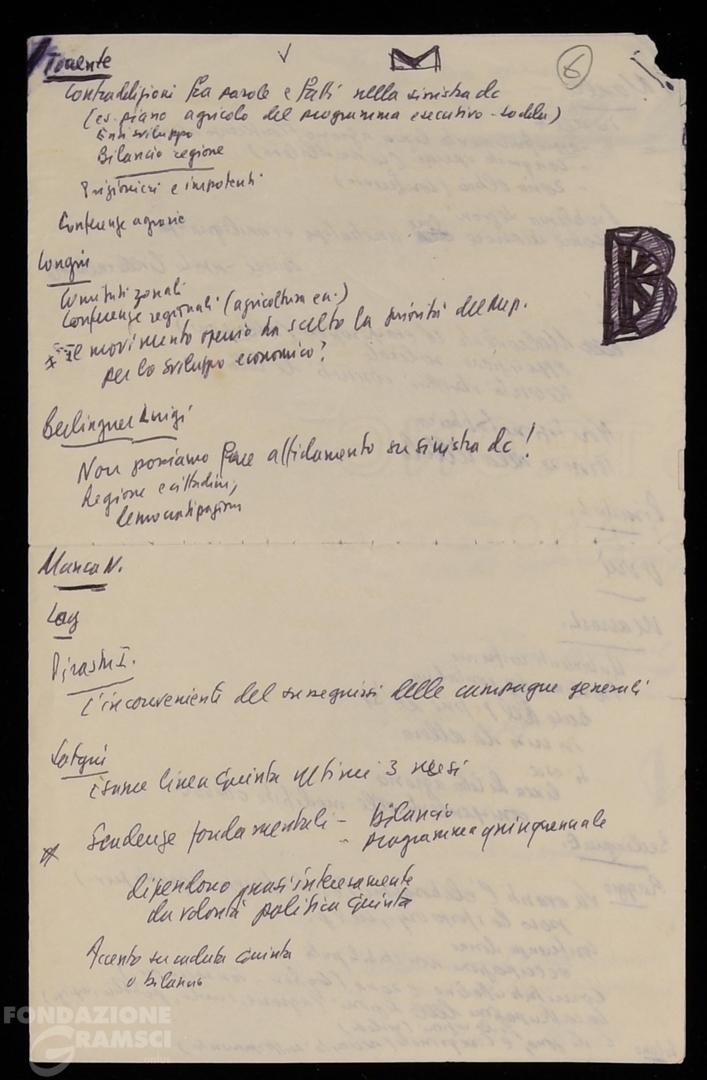 6
Torrente
Contraddizioni fra parole e fatti nella sinistra dc
(es. piano agricolo del programma esecutivo - Soddu)
Enti sviluppo
Bilancio regione
Prigionieri e impotenti
Conferenze agrarie
Congiu
Comitati zonali
Conferenze regionali (agricoltura ecc.)
Il movimento operaio ha scelto la priorità del
per lo sviluppo economico?
Berlinguer Luigi
Non possiamo fare affidamento su sinistra dc!
Regione e cittadini,
democratizzazione
Manca N.
Lay
Pirastu I.
L'inconveniente del susseguirsi delle campagne generali
esame linea Giunta ultimi 3 mesi
Scadenze fondamentali - bilancio
- programma quinquennale
dipendono quasi interamente
da volontà politica Giunta
Accento su caduta Giunta
o bilancio
FONDAZIONE
GRAMSCI